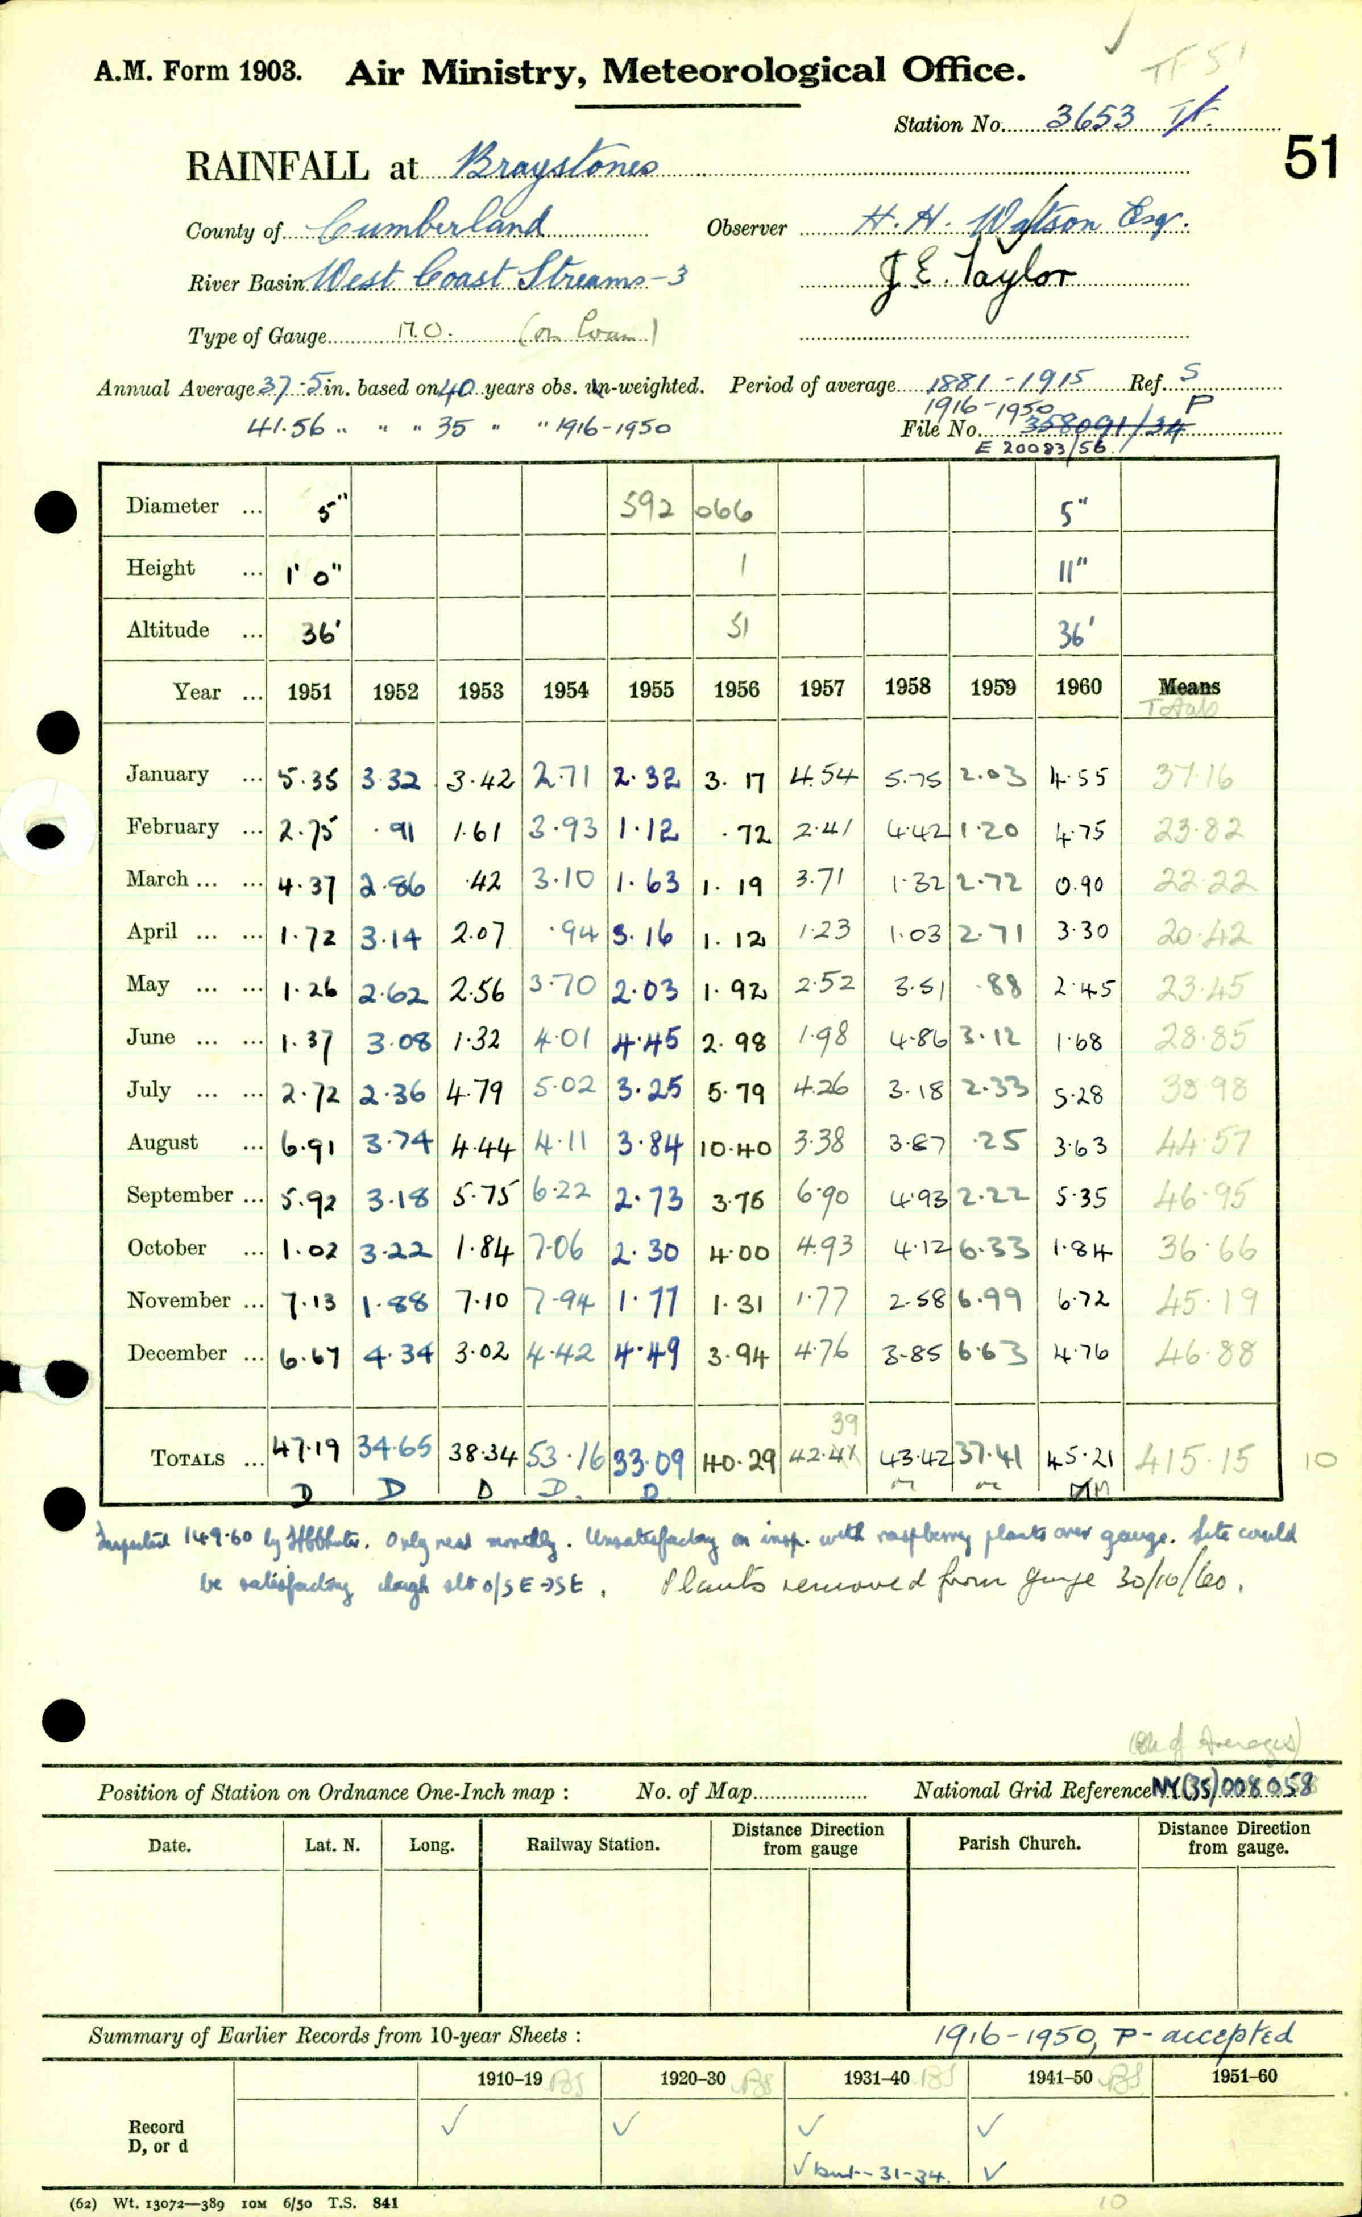 TF 51
A.M. Form 1903. Air Ministry, Meteorological Office.
Station No. 3653 Tf.
51
RAINFALL at Braystones
County of Cumberland Observer H. H. Watson Esq.
River Basin West Coast Streams-3 J E. Taylor
Type of Gauge M.O. (on loan)
Annual Average 37.5 in. based on 40 years obs. un-weighted. Period of average 1881-1915 Ref. S
1916-1950 P
41.56 " " " 35 " " 1916-1950 File No. 358091/34
E 20083/56
Diameter ... 5" 592 066 5"
Height ... 1' 0" 1 11"
Altitude ... 36' 51 36'
Year ... 1951 1952 1953 1954 1955 1956 1957 1958 1959 1960 Means
Totals
January ... 5.35 3.32 3.42 2.71 2.32 3.17 4.54 5.75 2.03 4.55 37.16
February ... 2.75 .91 1.61 3.93 1.12 .72 2.41 4.42 1.20 4.75 23.82
March ... ... 4.37 2.86 .42 3.10 1.63 1.19 3.71 1.32 2.72 0.90 22.22
April ... ... 1.72 3.14 2.07 .94 3.16 1.12 1.23 1.03 2.71 3.30 20.42
May ... ... 1.26 2.62 2.56 3.70 2.03 1.92 2.52 3.51 .88 2.45 23.45
June ... ... 1.37 3.08 1.32 4.01 4.45 2.98 1.98 4.86 3.12 1.68 28.85
July ... ... 2.72 2.36 4.79 5.02 3.25 5.79 4.26 3.18 2.33 5.28 38.98
August ... 6.91 3.74 4.44 4.11 3.84 10.40 3.38 3.87 .25 3.63 44.57
September ... 5.92 3.18 5.75 6.22 2.73 3.76 6.90 4.93 2.22 5.35 46.95
October ... 1.02 3.22 1.84 7.06 2.30 4.00 4.93 4.12 6.33 1.84 36.66
November ... 7.13 1.88 7.10 7.94 1.77 1.31 1.77 2.58 6.99 6.72 45.19
December ... 6.67 4.34 3.02 4.42 4.49 3.94 4.76 3.85 6.63 4.76 46.88
39
TOTALS ... 47.19 34.65 38.34 53.16 33.09 40.29 42.41 43.42 37.41 45.21 415.15 10
D D D D. D. m m M
Inspected 14.9.60 by. Only read monthly. Unsatisfactory on insp. with raspberry plants over gauge. Site could
be satisfactory though slt o/s E→SE. Plants removed from gauge 30/10/60.
(Bk of Averages)
Position of Station on Ordnance One-Inch map : No. of Map National Grid Reference NY(35)008058
Date. Lat. N. Long. Railway Station. Distance Direction from gauge Parish Church. Distance Direction from gauge.
Summary of Earlier Records from 10-year Sheets : 1916-1950, P- accepted
1910–19 BS 1920–30 BS 1931–40 BS 1941–50 BS 1951–60
Record
D, or d
✓ ✓ ✓ ✓
✓ but - 31-34. ✓
(62) Wt. 13072—389 10M 6/50 T.S. 841
10